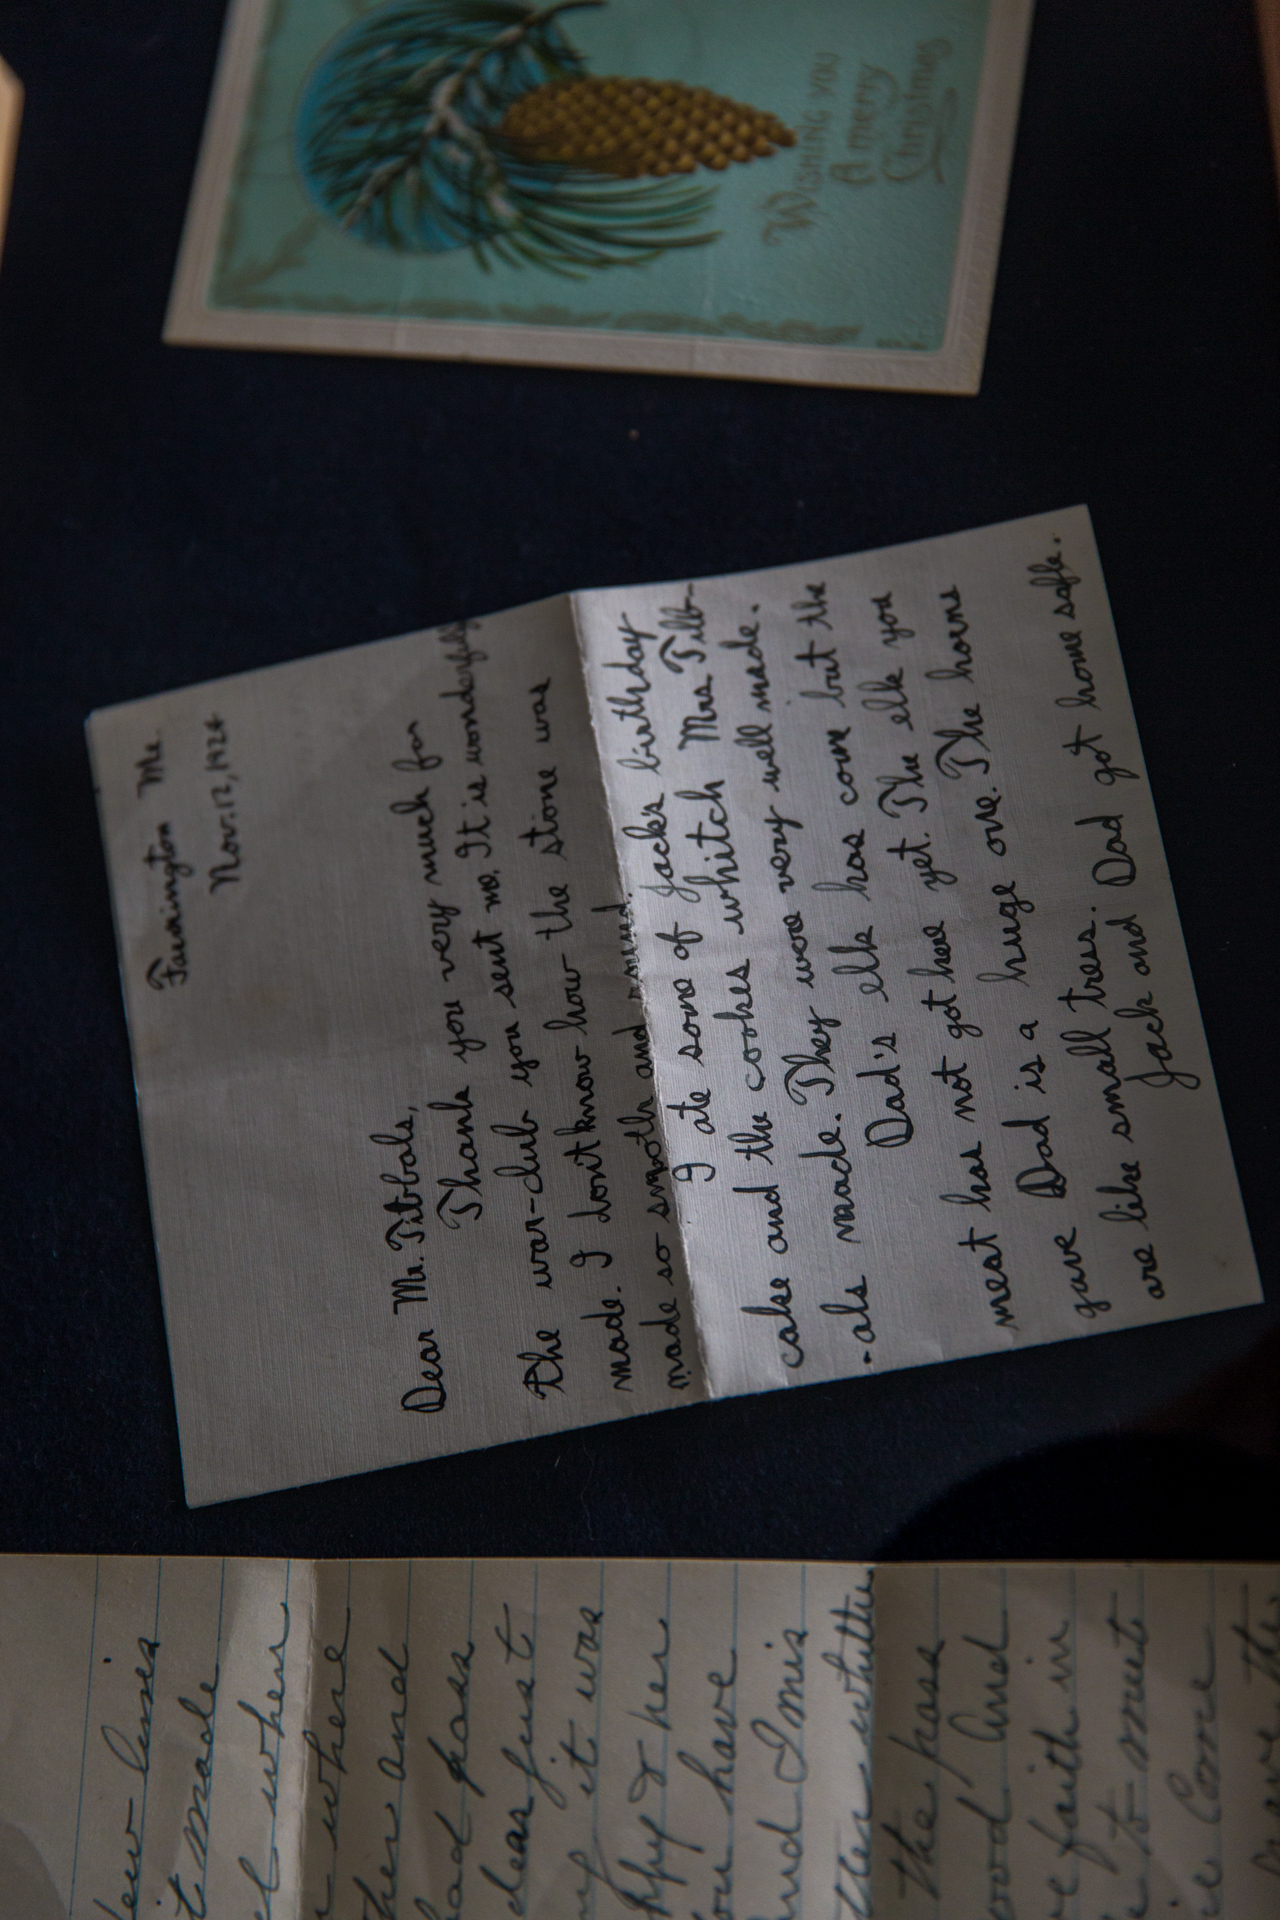 Wishing you
A merry
Christmas
Farmington Me.
Nov. 12, 1924
Dear Mr. Tibbals,
Thank you very much for
the war-club you sent me. It is wonderfully
made. I dont know how the stone was
made so smooth and round.
I ate some of Jack's birthday
cake and the cookies whitch Mrs. Tibb-
-als made. They were very well made.
Dad's elk has come but the
meat has not got here yet. The elk you
gave Dad is a huge one. The horns
are like small tress. Dad got home saffe.
Jack and
few lines
t made
when
where
ther and
had pass
dear just
it was
& her
you have
and I mis
the pass
ood And
faith in
to meet
Come